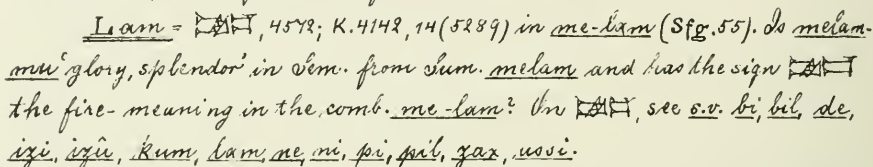 Lam = 𒉈, 4572; K.4142, 14 (5289) in me-lam (Sfg. 55). Is melam-
mu 'glory, splendor' in Sem. from Sum. melam and has the sign 𒉈
the fire-meaning in the comb. me-lam? On 𒉈, see s.v. bi, bil, de,
izi, izû, kum, lam, ne, ni, pi, pil, zax, ussi.